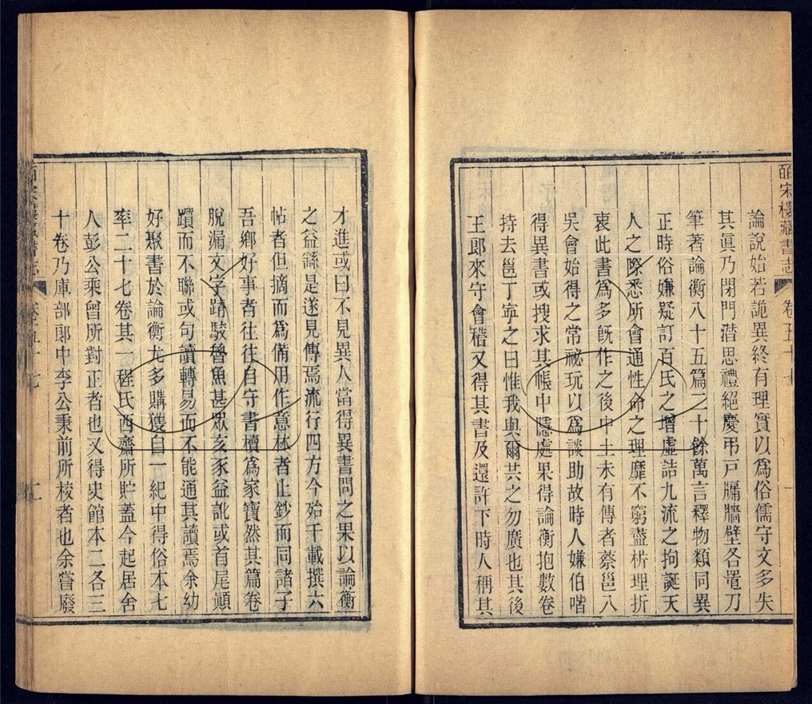 皕宋樓藏書志 卷五十七
論說始若詭異終有理實以爲俗儒守文多失
其眞乃閉門潛思禮絕慶弔戸牖牆壁各置刀
筆著論衡八十五篇二十餘萬言釋物類同異
正時俗嫌疑訂百氏之增虛詰九流之拘誕天
人之際悉所會通性命之理靡不窮盡析理折
衷此書爲多旣作之後中土未有傳者蔡邕入
吳會始得之常祕玩以爲談助故時人嫌伯喈
得異書或搜求其帳中隱處果得論衡抱數卷
持去邕丁寧之曰惟我與爾共之勿廣也其後
王郎來守會稽又得其書及還許下時人稱其
才進或曰不見異人當得異書問之果以論衡
之益繇是遂見傳焉流行四方今殆千載撰六
帖者但摘而爲備用作意林者止鈔而同諸子
吾鄉好事者往往自守書櫝爲家寶然其篇卷
脫漏文字踳駮魯魚甚眾亥豕益訛或首尾顚
躓而不聯或句讀轉易而不能通其讀焉余幼
好聚書於論衡尤多購獲自一紀中得俗本七
率二十七卷其一程氏西齋所貯蓋今起居舍
人彭公乘曾所對正者也又得史館本二各三
十卷乃庫部郎中李公秉前所校者也余嘗廢
皕宋樓藏書志 卷五十七